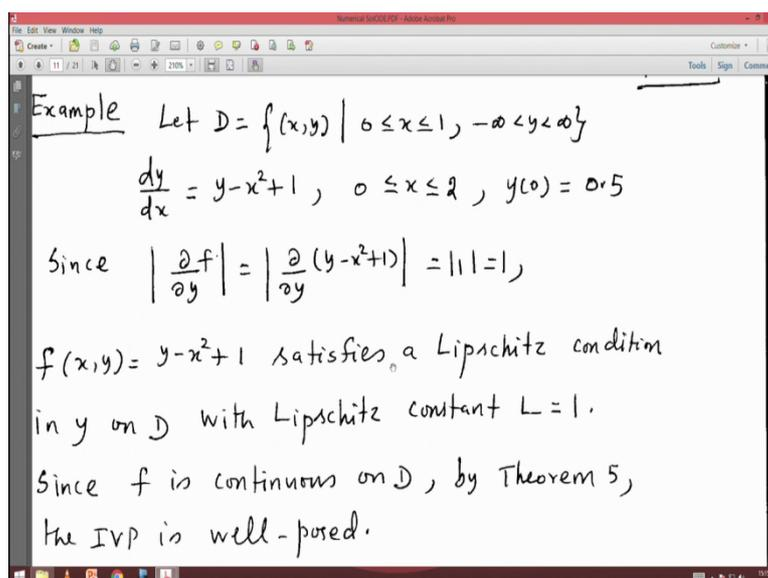 Numerical SolODE.PDF - Adobe Acrobat Pro
File Edit View Window Help
Create Customize
11 / 21 210% Tools Sign Comme
Example Let D = {(x,y) | 0 ≤ x ≤ 1, -∞ < y < ∞}
dy/dx = y - x² + 1, 0 ≤ x ≤ 2, y(0) = 0.5
Since |∂f/∂y| = |∂/∂y (y - x² + 1)| = |1| = 1,
f(x,y) = y - x² + 1 satisfies a Lipschitz condition
in y on D with Lipschitz constant L = 1.
Since f is continuous on D, by Theorem 5,
the IVP is well-posed.